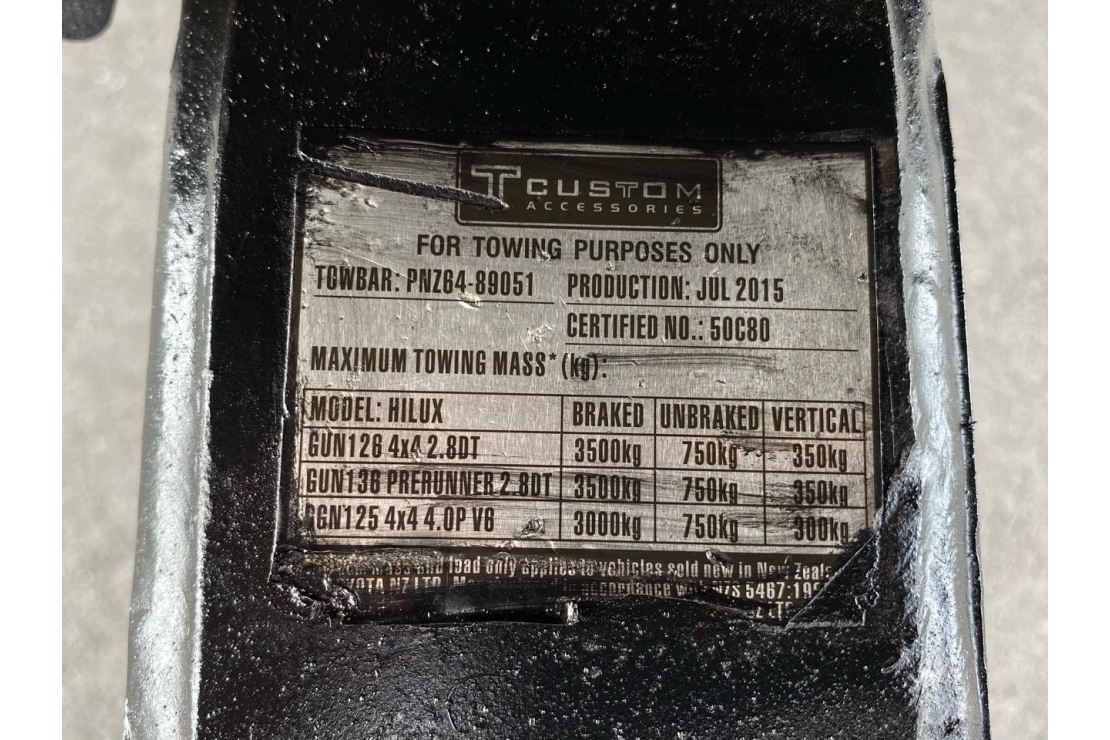 T CUSTOM
ACCESSORIES
FOR TOWING PURPOSES ONLY
TOWBAR: PNZ64-89051 PRODUCTION: JUL 2015
CERTIFIED NO.: 50C80
MAXIMUM TOWING MASS* (kg):
MODEL: HILUX BRAKED UNBRAKED VERTICAL
GUN126 4x4 2.8DT 3500kg 750kg 350kg
GUN136 PRERUNNER 2.8DT 3500kg 750kg 350kg
GGN125 4x4 4.0P V6 3000kg 750kg 300kg
and load only applies to vehicles sold new in New
NZ LTD. accordance with NZS 5467:19